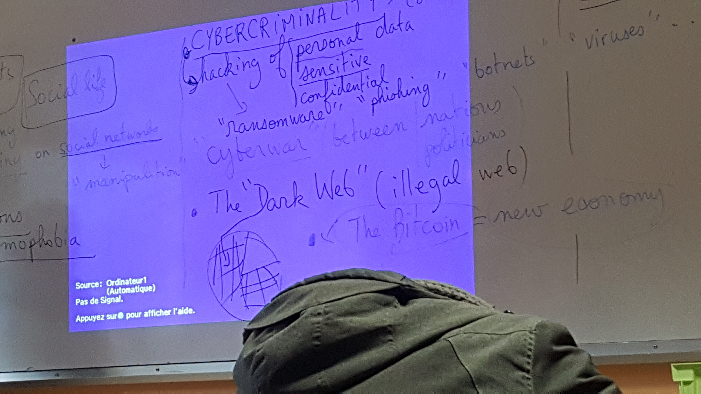 CYBERCRIMINALITY
hacking of personal data
sensitive
confidential
"ransomware", "phishing", "botnets" "viruses"...
Cyberwar (between nations)
politicians
The "Dark Web" (illegal web)
The Bitcoin = new economy
Social life
on social networks
"manipulation"
mophobia
Source: Ordinateur1
(Automatique)
Pas de Signal.
Appuyez sur pour afficher l'aide.